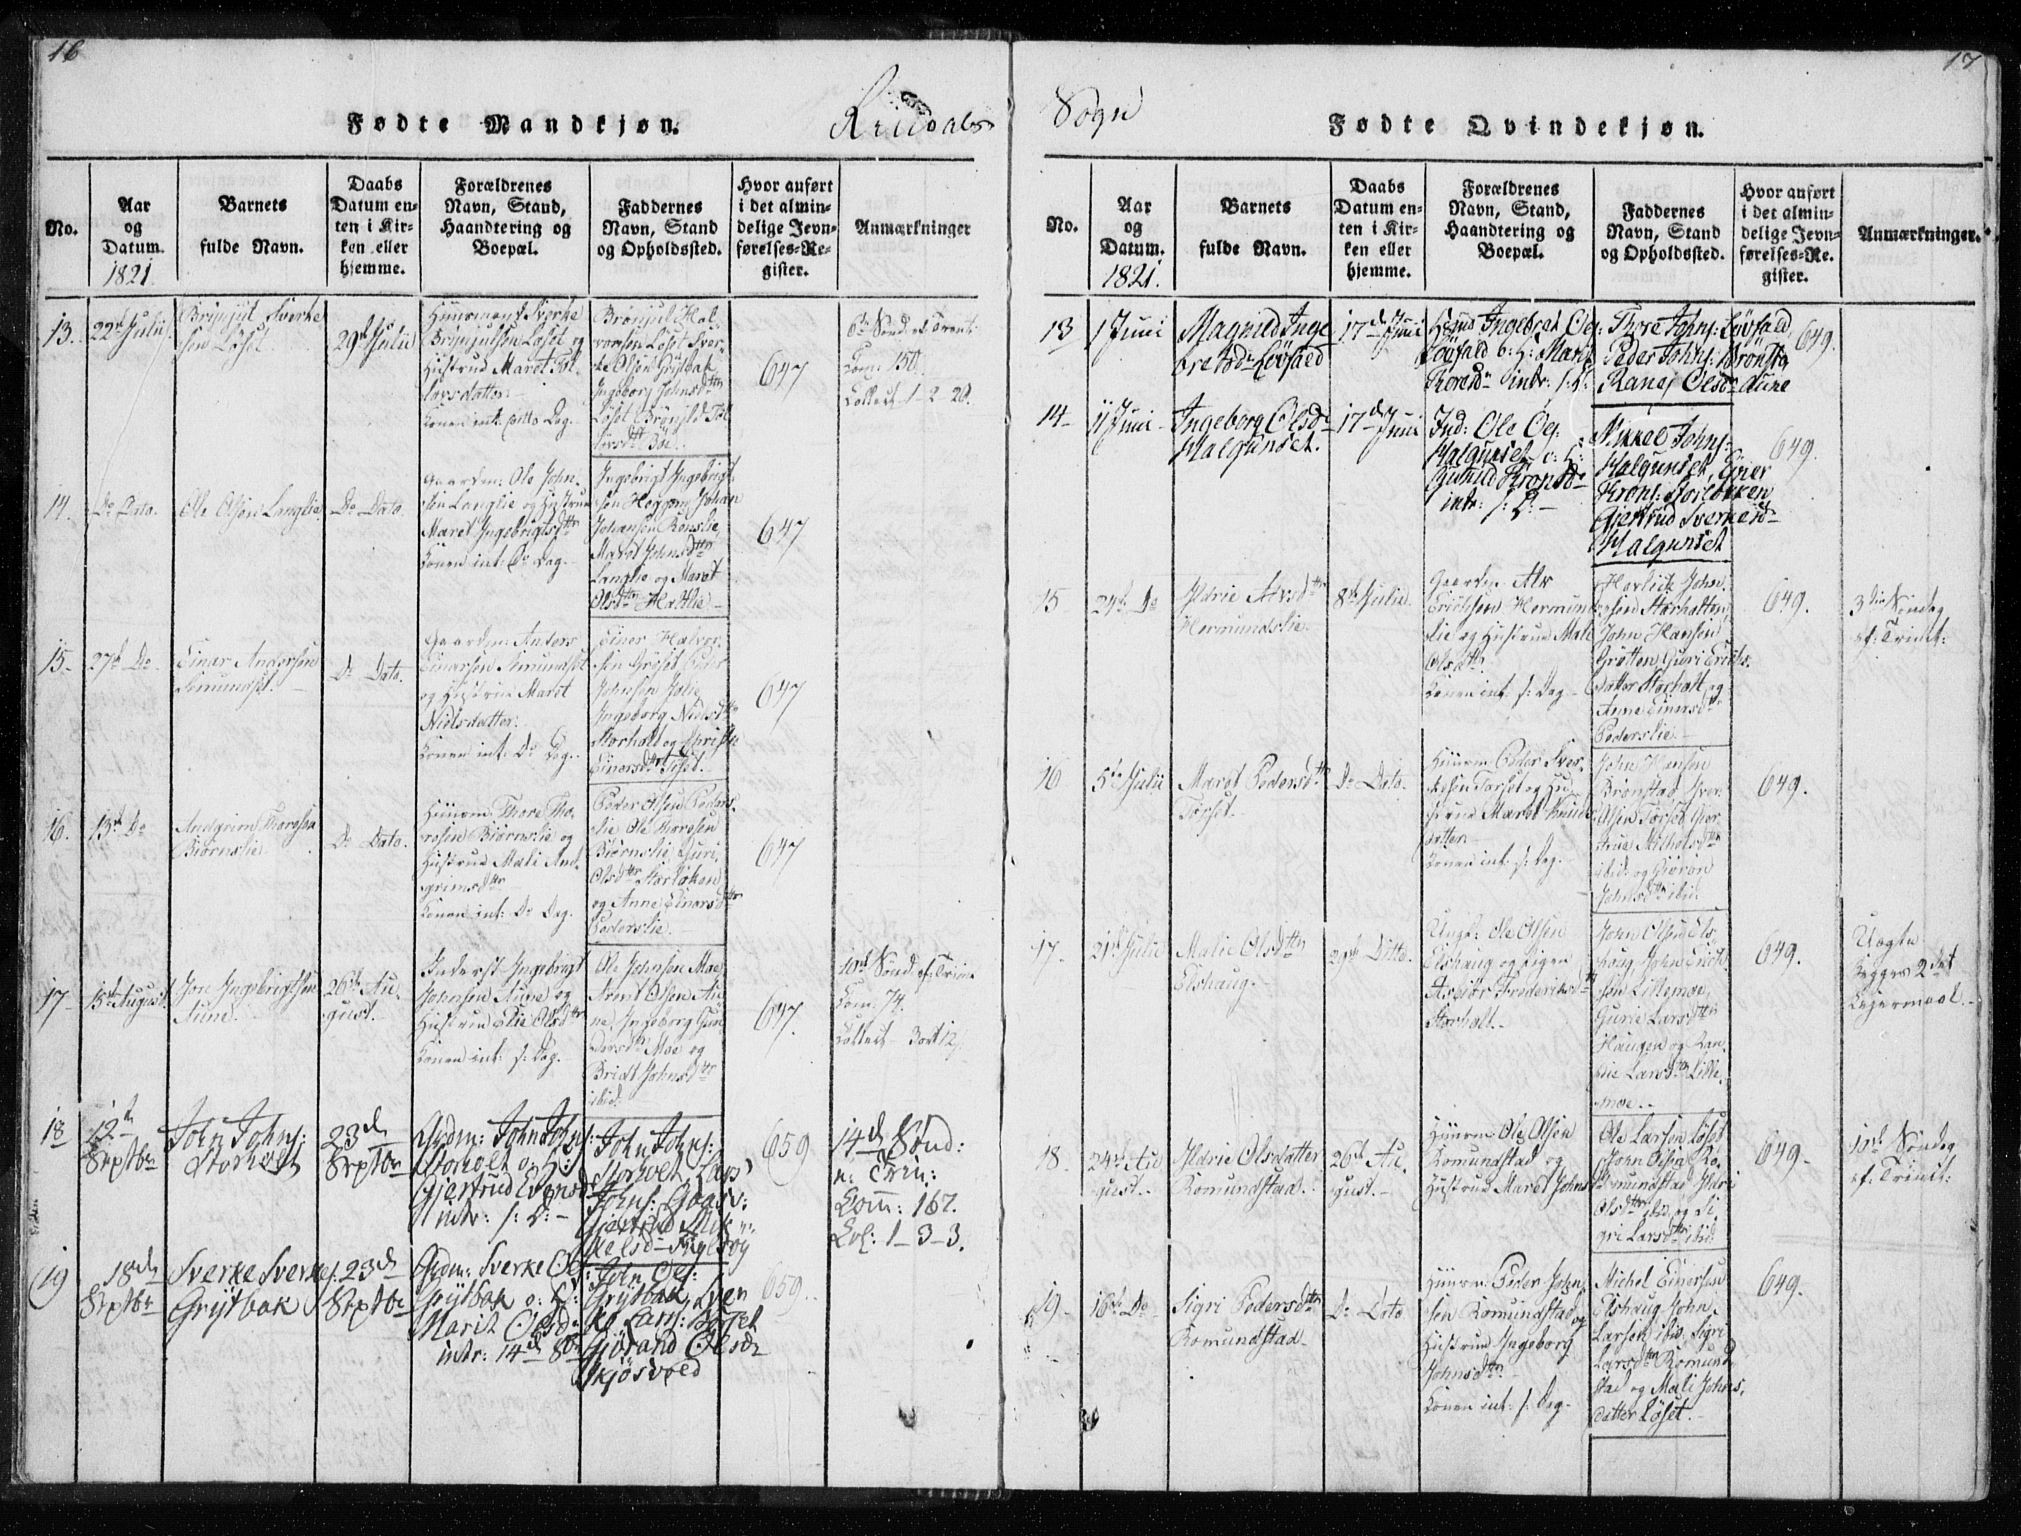 16
Fødte Mandkjøn.
Rindals
No.
Aar
og
Datum.
1821.
Barnets
fulde Navn.
Daabs
Datum en-
ten i Kir-
ken eller
hjemme.
Forældrenes
Navn, Stand,
Haandtering og
Boepæl.
Faddernes
Navn, Stand
og Opholdssted.
Hvor anført
i det almin-
delige Jevn-
førelses-Re-
gister.
Anmærkninger
13.
22d Julii
Brynjul Sverke
sen Løset
29d Julii
Huusmand Sverke
Brynjulsen Løset og
Hustrue Maret Tol
lavsdatter
Konen int. samme Dag.
Brønjul Hal-
vorsen Løset Sver-
ke Olsen Grytbak
Ingeborg Johnsdttr
Løset
647
Com: 150
Collect 1-2-20.
14.
Do Dato.
Ole Olsen Langlie
Do Dato.
Gaardm: Ole John-
sen Langlie og Hustrue
Maret Ingebrigtsdttr
Konen int: Do Dag.
Ingebrigt Ingebrigt-
sen Heggem Johan
Johansen Rønslie
Maret Johnsdttr
Langlie og Maret
Olsdttr Hattlie
647
15
27d Do
Einar Andersen
Romundset.
Do Dato.
Gaardm: Anders
Einarsen Romundset
og Hustrue Maret
Nielsdatter.
Konen int: Do Dag.
Einer Halvor-
sen Grøset Peder
Johnsen Jølie
Ingeborg Nielsdttr
Storholt og
Einersdttr
647
16.
13d Do
Andgrim Thoresen
Biørnslie.
Do Dato.
Huusm: Thore Tho-
resen Biørnslie og
Hustrue Mali And-
grimsdttr
Konen int: Do Dag.
Peder Olsen Peders-
lie Ole Thoresen
Biørnslie, Guri
Olsdttr Storløken
og Anne Einarsdttr
Pederslie.
647
17
15d August
Jon Ingebrigtsen
Aune.
26d Au-
gust.
Inderst Ingebrigt
Johnsen Aune og
Hustrue Elie Olsdttr
Konen int: s: Dag.
Ole Johnsen Moe
Arnt Olsen Au-
ne, Ingeborg Gun
dersdttr Moe og
Bridt Johnsdttr
ibid.
647.
10d Sønd: ef: Trin:
Com. 74.
Collect
18
12te
Septbr
John Johns:
Storholt
23d
Septbr
Grdm: John Johns:
Storholt o: H:
Gjertrud Evensd
intr: s: D:
John Johns:
Storholt, Lars
Johns: Gaasv:
Gjertrud Mik
kelsd
659
14d Sønd:
n: Trin:
Com: 167.
Col: 1-3-3.
19
18d
Septbr
Sverke Sverkes:
Grytbak
23d
Septbr
Grdm: Sverke Ols:
Grytbak o: H:
Marit Olsd
intr: 14d 8br
John Ols:
Grytbak, Sven
Lars:
Gjørand Olsd
Skjøsvold
659.
17
Sogn
Fødte Qvindekjøn.
No.
Aar
og
Datum.
1821.
Barnets
fulde Navn.
Daabs
Datum en-
ten i Kir-
ken eller
hjemme.
Forældrenes
Navn, Stand,
Haandtering og
Boepæl.
Faddernes
Navn, Stand
og Opholdssted.
Hvor anført
i det almin-
delige Jevn-
førelses-Re.
gister.
Anmærkninger.
13
1 Juni
Magnild Inge
bretsd: Løvfald
17d Juni
Huusm Ingebret Ols:
Løvfald o: H: Marit
Toresd intr: s: D:
Thore Johns: Løvfald
Peder Johns: Brønsta
Ranej Olsd Aune
649.
14
11 Juni
Ingeborg Olsd
Halgunset.
17d Juni
Ind: Ole Ols:
Halgunset o: H:
Gunild Kronsd
intr: s: D:
Mikkel Johns:
Halgunset, Einer
Krons: Storløken
Gjertrud Sverkesd
Halgunset
649.
15
24d Do
Ildrie Alvsdttr
Hermundslie.
8d Julii.
Gaardm. Alv
Erichsen Hermund
lie og Hustrue Mali
Olsdttr
Konen int: s: Dag
John-
sen Storholten
John Hansen
Grøtten, Guri Erichs-
datter Storholt, og
Anne Einersdttr
Pederslie.
649.
3die Søndag
ef: Trinit:
16
5te Julii
Maret Pedersdttr
Torset.
Do Dato.
Huusm: Peder Sver-
kesen Torset og Hu-
strue Maret Knuds
datter
Konen int: s: Dag.
John Hansen
Brønstad, Iver
Olsen Torset
Michelsdttr
ibid: og Giøron
Johnsdttr ibid:
649.
17.
21d Julii
Malie Olsdttr
Elshaug.
29d Ditto.
Ungk: Ole Olsen
Elshaug og Pigen
Asbiør Friderichsdttr
Storholt.
John Olsen Els-
haug, John Erich-
sen Lillemoe,
Gurie Larsdttr
Haugen og
Larsdttr Lille-
moe.
649.
Uægte
Begges 2det
Leiermaal.
18.
24d Au
gust.
Ildrie Olsdatter
Romundstad.
26d Au-
gust.
Huusm: Ole Olsen
Romundstad og
Hustrue Maret Johns
Ole Larsen Løset
John Olsen Ro-
mundstad Ildri
Olsdttr ibid. og Si-
gri Larsdttr ibid:
649
10d Søndag
ef: Trinit:
19
16d Do
Sigri Pedersdttr
Romundstad
Do Dato
Huusm: Peder John-
sen Romundstad og
Hustrue Ingeborg
Johnsdttr
Konen int: s: Dag.
Michel Einersen
Elshaug John
Larsen ibid. Sigri
Larsdttr Romund-
stad og Mali Johns-
datter Løset.
649.